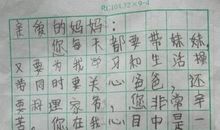 亲爱的妈妈：
您每天都要带妹妹，
又要为我学习知生活操
劳同时要关心爸爸，还
要料理家务，您非常辛
苦。您在我心目中是一